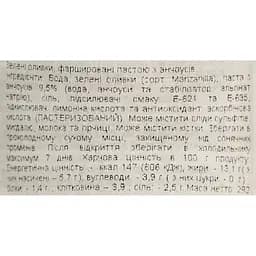 Зелені оливки, фаршировані пастою з анчоусів.
Інгредієнти: Вода, зелені оливки (сорт Manzanilla), паста з
анчоусів 9,5% (вода, анчоуси та стабілізатор: альгінат
натрію), сіль, підсилювачі смаку: Е-621 та Е-635,
підкислювач: лимонна кислота та антиоксидант: аскорбінова
кислота (ПАСТЕРИЗОВАНИЙ). Може містити сліди сульфітів,
мигдалю, молока та гірчиці. Може містити кістки. Зберігати в
прохолодному сухому місці, захищеному від сонячних
променів. Після відкриття зберігати в холодильнику
максимум 7 днів. Харчова цінність в 100 г продукту:
Енергетична цінність - ккал 147 (606 кДж), жири - 13,1 г (
них насичені - 5,7 г), вуглеводи - 3,9 г (з них цукри - 0 г)
білки - 1,4 г, клітковина - 3,9, сіль - 2,5 г. Маса нетто 292